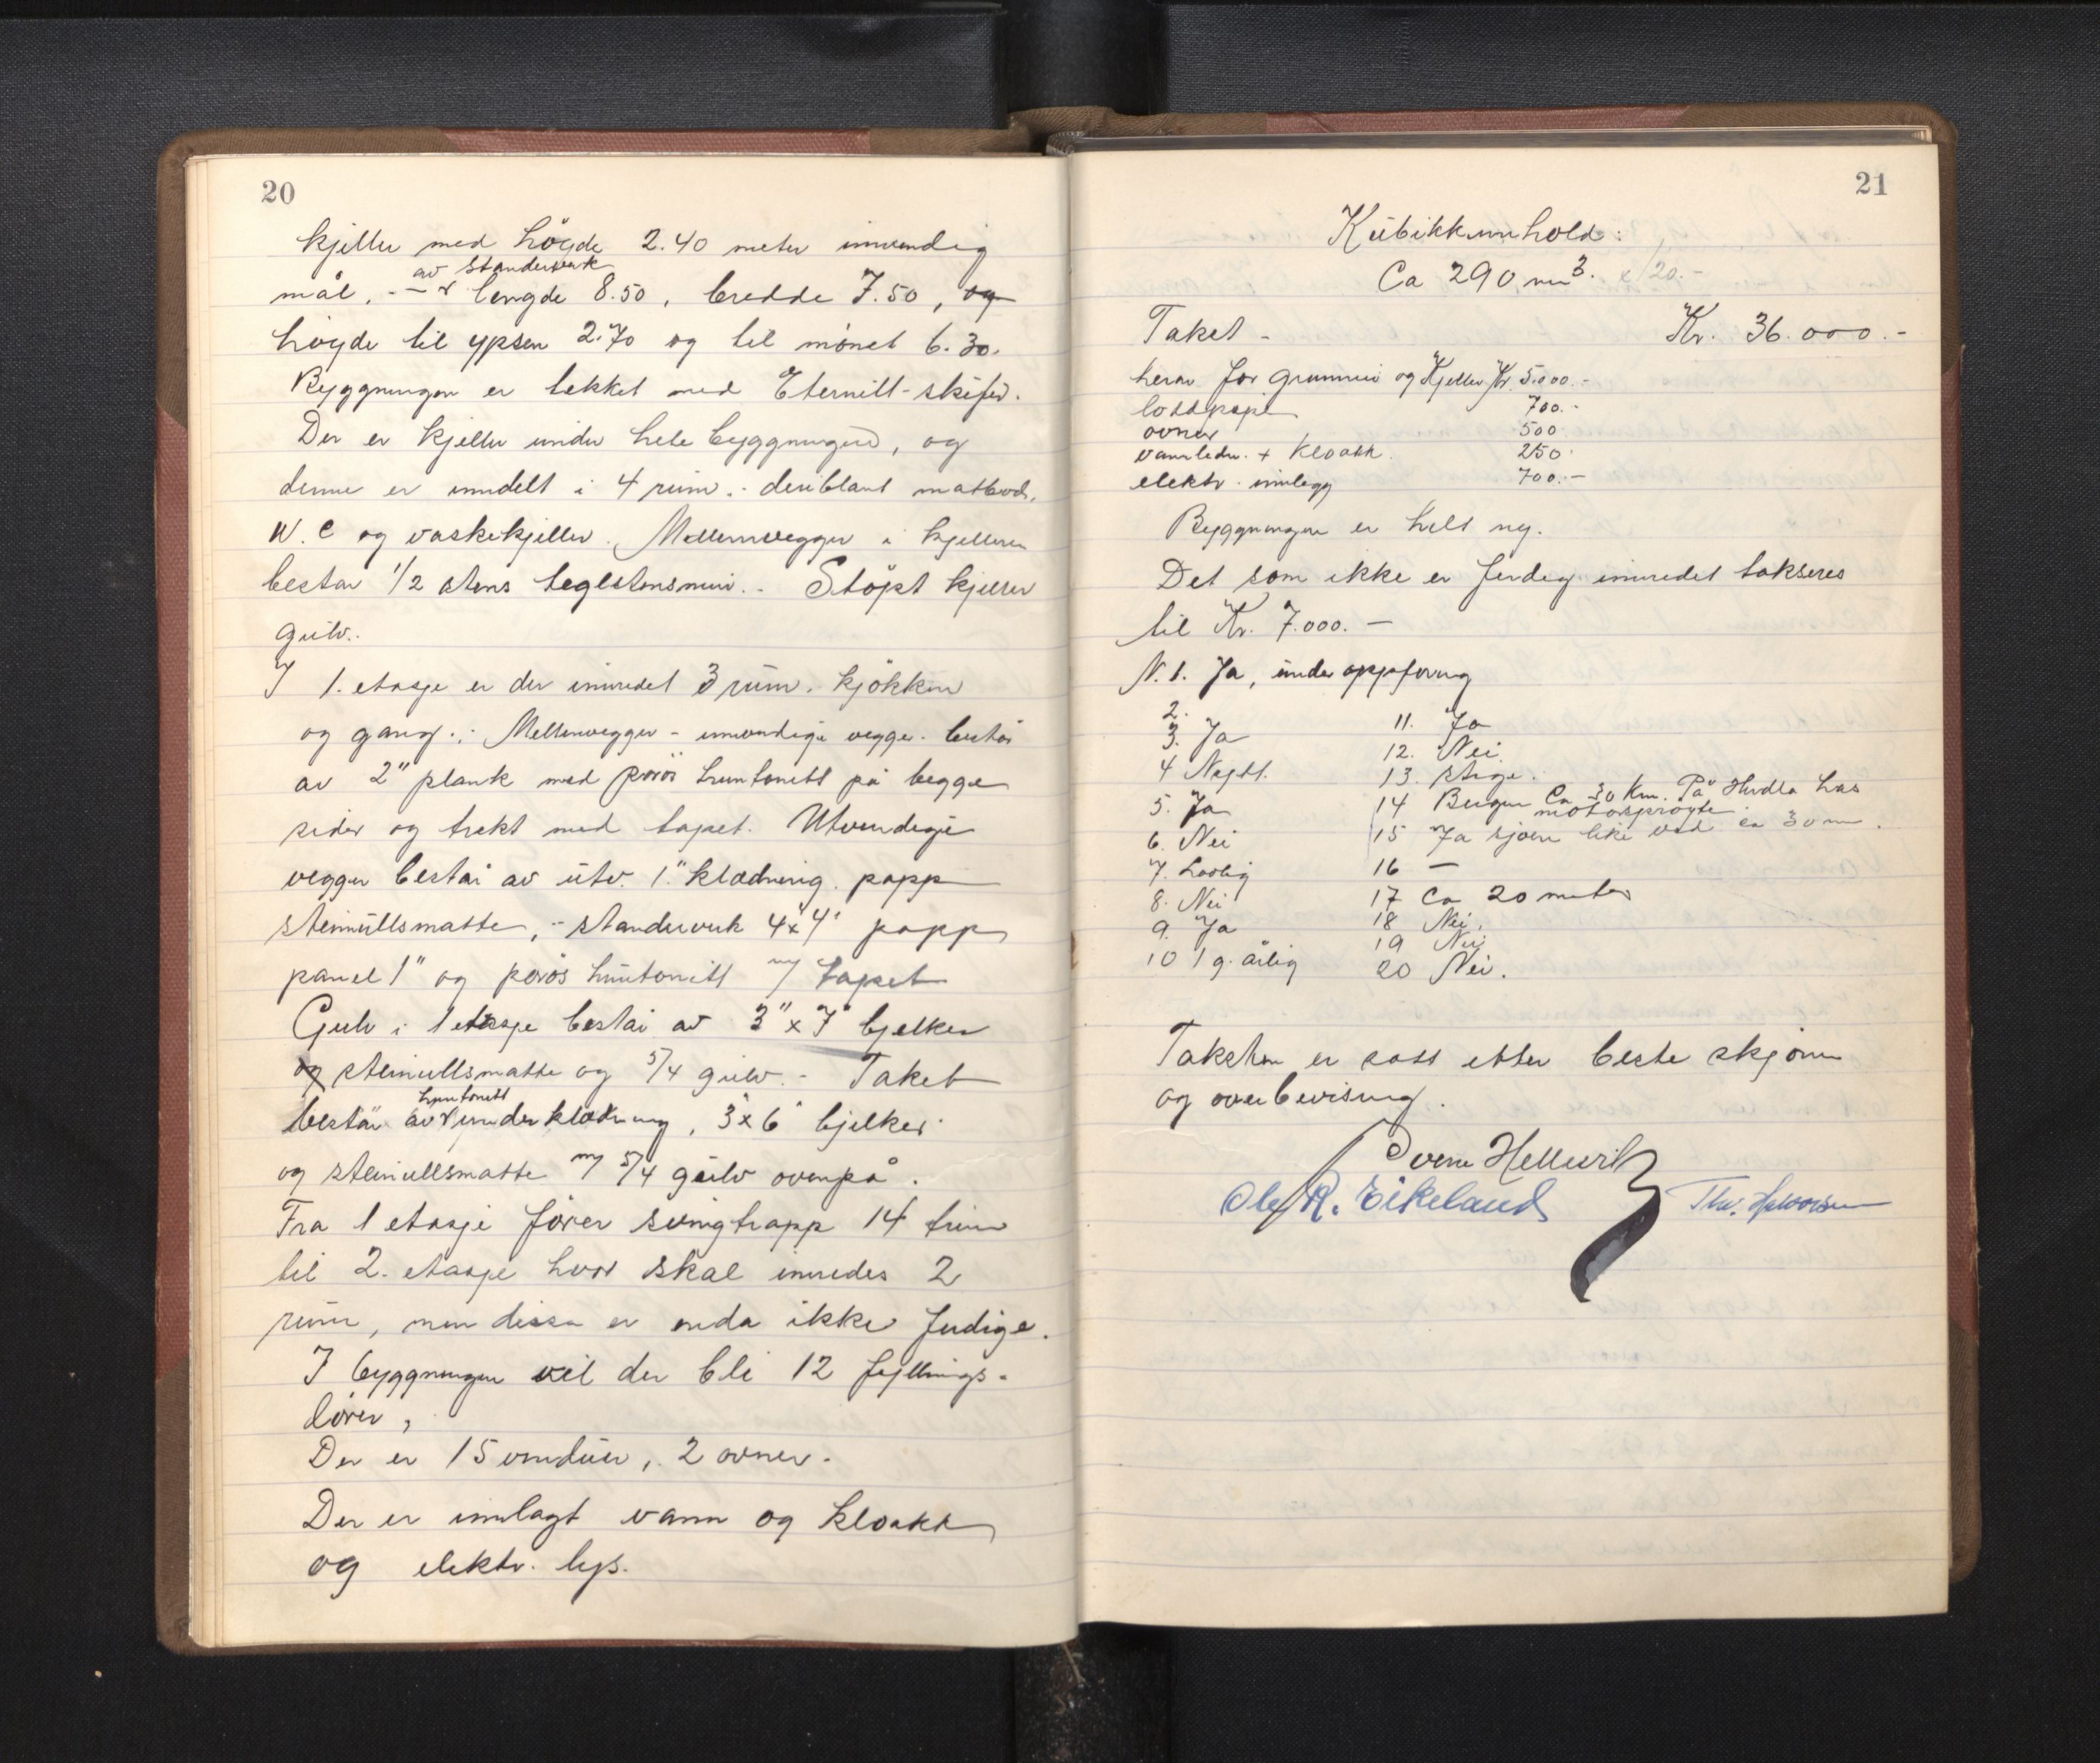 20
kjeller med höyde 2.40 meter innvendig
av standerverk
mål. - lengde 8.50, bredde 7.50, og
höyde til ypsen 2.70 og til mönet 6.30.
Byggningen er tekket med Eternitt-skifer.
Der er kjeller under hele byggningen, og
denne er inndelt i 4 rum.- deriblant matbod,
W.C og vaskekjeller. Mellemvegger i kjelleren
bestar 1/2 stens teglstensmur.- Stöpt kjeller
gulv.
I 1. etasje er der innredet 3 rum, kjökken
og gang.,- Mellemvegger - innvendige vegge. består
av 2" plank med porös huntonitt på begge
sider og trekt med tapet. Utvendige
vegger består av utv. 1" klædning. papp
steinullsmatte, - standerverk 4"x4" papp
panel 1" og porös huntonitt m/ tapet
Gulv i 1 etasje består av 3"x7" bjelker
og steinullsmatte og 5/4 gulv.- Taket
huntonitt
består av underklædning, 3"x6" bjelker
og steinullsmatte m/ 5/4 gulv ovenpå.
Fra 1 etasje förer svingtrapp 14 trin
til 2. etasje hvor skal innredes 2
rum, men disse er enda ikke ferdige.
I byggningen vil der bli 12 fyllings-
dörer,
Der er 15 vinduer, 2 ovner.
Der er innlagt vann og kloakk
og elektr. lys.
21
Kubikkinnhold:
Ca 290 m3. x 20.-
Takst - Kr. 36.000.-
herav for grunnmur og Kjeller Kr. 5.000.-
loddpipe 700.-
ovner 500
vannledn. + Kloakk. 250.
elektr. innlegg 700.-
Byggningen er helt ny.
Det som ikke er ferdig innredet takseres
til Kr. 7.000.-
N. 1. Ja, under oppföring
2.
3. Ja
4
5. Ja
6. Nei
7. Lovlig
8. Nei
9. Ja
10 1 g. årlig
11. Ja
12. Nei
13. stige.
14 Bergen Ca 30 Km. På Herdla has
motorspröyte
15 Ja sjöen like ved ca 30 m.
16 -
17 Ca 20 meter
18 Nei.
19 Nei
20 Nei.
Taksten er satt etter beste skjönn
og overbevisning.
Sverre Hellesvik
Ole R. Eikeland